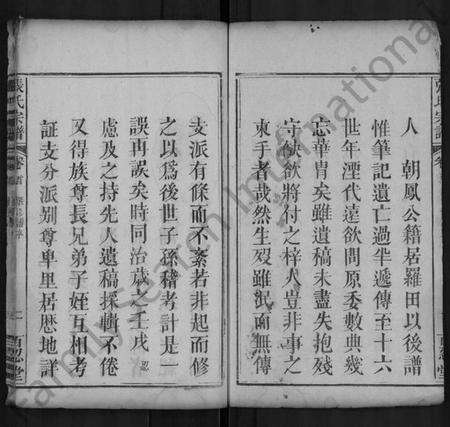 人　朝鳳公籍居羅田以後譜
惟筆記遺亡過半遞傳至十六
世年湮代遠欲問原委數典幾
忘華胄矣雖遺稿未盡失抱殘
守缺欲將付之梓人豈非事之
束手者哉然生歿雖泯而無傳
支派有條而不紊若非起而修
之以為後世子孫稽考計是一
誤再誤矣時同治歲壬戌
慮及之持先人遺稿採輯不倦
又得族尊長兄弟子姪互相考
証支分派別尊卑里居歷地詳
張氏宗譜
卷首
百忍堂
FamilySearch International